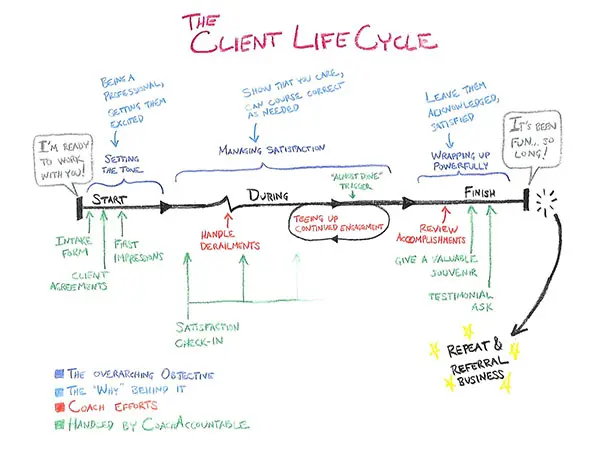 THE
CLIENT LIFE CYCLE
BEING A
PROFESSIONAL,
SETTING THEM
EXCITED
SHOW THAT YOU CARE,
CAN COURSE CORRECT
AS NEEDED
LEAVE THEM
ACKNOWLEDGED,
SATISFIED
I'M READY
TO WORK
WITH YOU!
SETTING
THE TONE
MANAGING SATISFACTION
WRAPPING UP
POWERFULLY
IT'S BEEN
FUN... SO
LONG!
START
DURING
"ALMOST DONE"
TRIGGER
FINISH
INTAKE
FORM
CLIENT
AGREEMENTS
FIRST
IMPRESSIONS
HANDLE
DERAILMENTS
TEEING UP
CONTINUED ENGAGEMENT
REVIEW
ACCOMPLISHMENTS
GIVE A VALUABLE
SOUVENIR
TESTIMONIAL
ASK
SATISFACTION
CHECK-IN
REPEAT &
REFERRAL
BUSINESS
THE OVERARCHING OBJECTIVE
THE "WHY" BEHIND IT
COACH EFFORTS
HANDLED BY COACHACCOUNTABLE